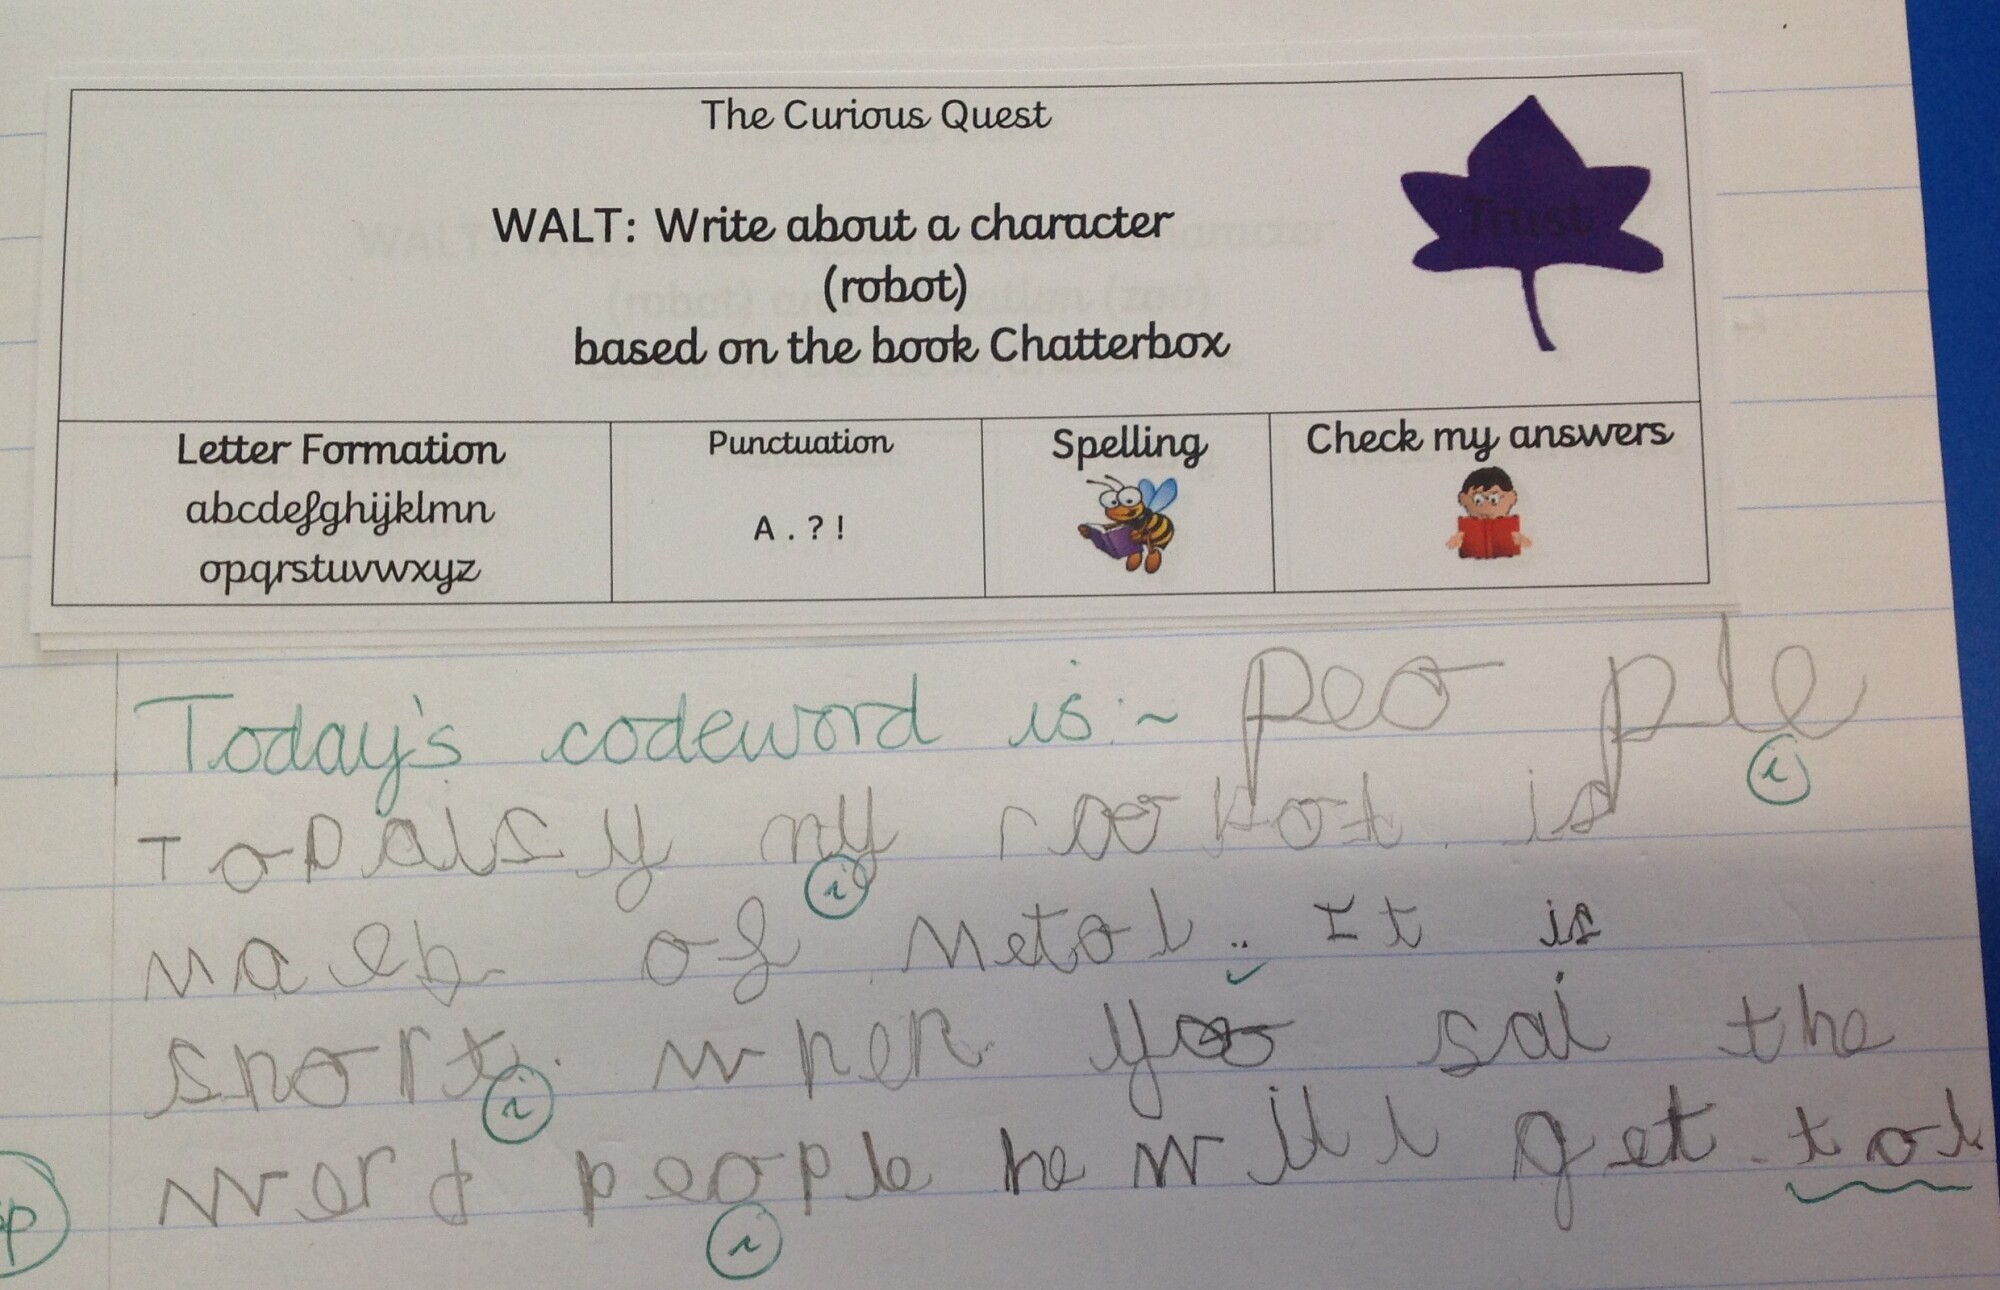 The Curious Quest
WALT: Write about a character
(robot)
based on the book Chatterbox
Trust
Letter Formation
abcdefghijklmn
opqrstuvwxyz
Punctuation
A . ? !
Spelling
Check my answers
Today's codeword is:~ peo ple
i
Topalsy my roobot is
i
maeb of Metol. It is
snort. when yoo sai the
i
word people he will get tol
i
p